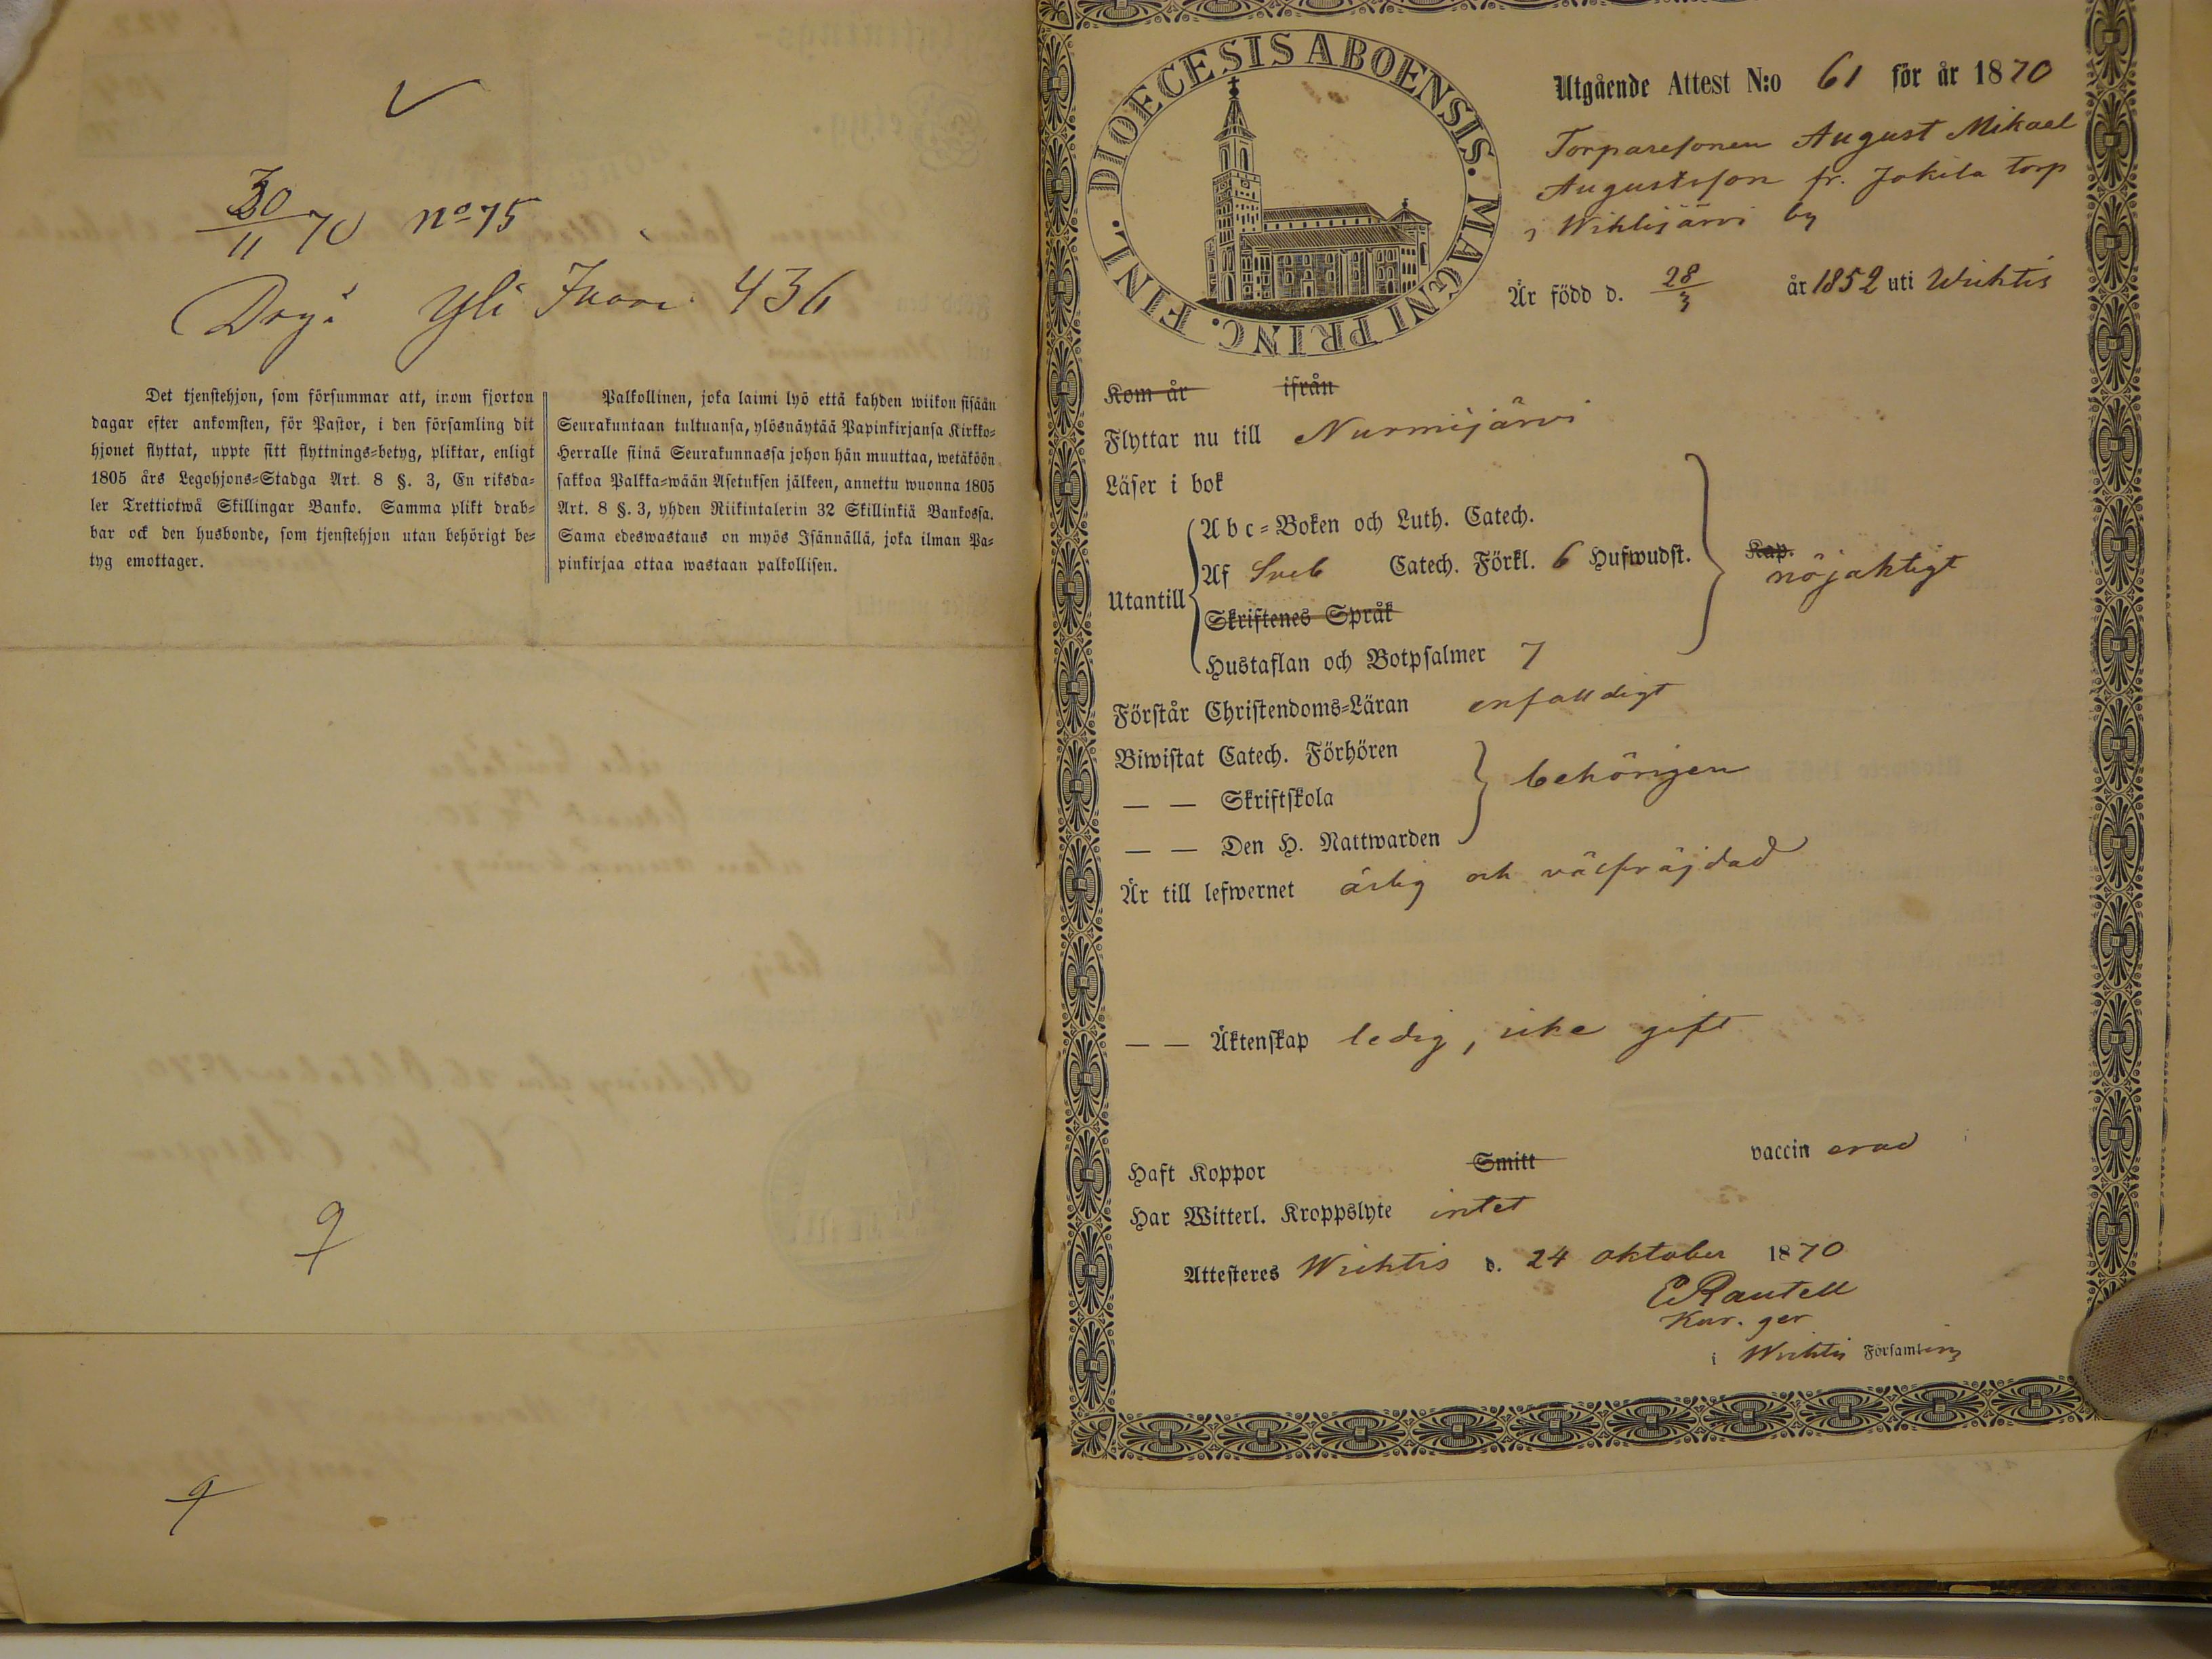 30/11 70 no 75
Drg. Yli Juvo. 436
Det tjenstehjon, som försummar att, inom fjorton
dagar efter ankomsten, för Pastor, i den församling dit
hjonet flyttat, uppte sitt flyttnings=betyg, pliktar, enligt
1805 års Legohjons=Stadga Art. 8 §. 3, En riksda=
ler Trettiotwå Skillingar Banko. Samma plikt drab=
bar ock den husbonde, som tjenstehjon utan behörigt be=
tyg emottager.
Palkollinen, joka laimi lyö että kahden wiikon sisään
Seurakuntaan tultuansa, ylösnäytää Papinkirjansa Kirkko=
Herralle siinä Seurakunnassa johon hän muuttaa, wetäköön
sakkoa Palkka=wään Asetuksen jälkeen, annettu wuonna 1805
Art. 8 §. 3, yhden Riikintalerin 32 Skillinkiä Bankossa.
Sama edeswastaus on myös Isännällä, joka ilman Pa=
pinkirjaa ottaa wastaan palkollisen.
DIOECESIS ABOENSIS. MAGNI PRINC. FINL.
Utgående Attest N:o 61 för år 1870
Torparesonen August Mikael
Augustsson fr. Jokila torp
i Wihtijärvi by
Är född d. 28/3 år 1852 uti Wichtis
Kom år ifrån
Flyttar nu till Nurmijärvi
Läser i bok
Utantill
A b c=Boken och Luth. Catech.
Af Sveb Catech. Förkl. 6 Hufwudst.
Skriftenes Språk
Hustaflan och Botpsalmer 7
Kap.
nöjaktigt
Förstår Christendoms=Läran enfalldigt
Biwistat Catech. Förhören
— — Skriftskola
— — Den H. Nattwarden
behörigen
Är till lefwernet ärlig och välfräjdad
— — Äktenskap ledig, icke gift
Haft Koppor Smitt vaccin erad
Har Witterl. Kroppslyte intet
Attesteres Wichtis d. 24 oktober 1870
E Rautell
Kur. ger
i Wichtis Församling